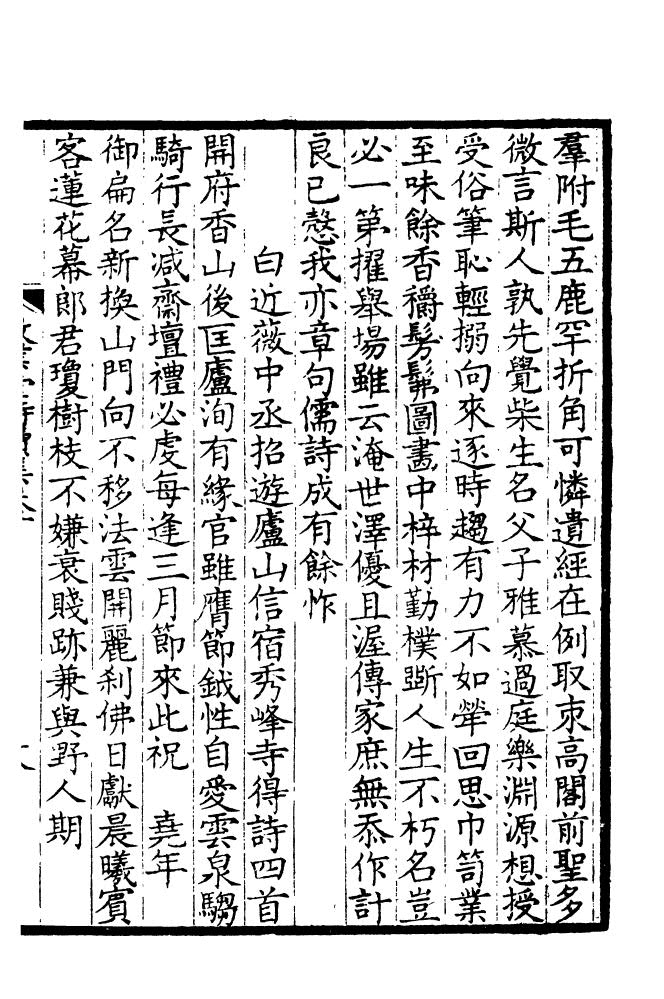 羣附毛五鹿罕折角可憐遺經在例取束高閣前聖多
微言斯人孰先覺柴生名父子雅慕過庭樂淵源想授
受俗筆恥輕搦向來逐時趨有力不如犖回思巾笥業
至味餘香穱髣髴圖畫中梓材勤樸斲人生不朽名豈
必一第擢舉場雖云淹世澤優且渥傳家庶無忝作計
良已愨我亦章句儒詩成有餘怍
白近薇中丞招遊廬山信宿秀峰寺得詩四首
開府香山後匡廬洵有緣官雖膺節鉞性自愛雲泉騶
騎行長減齋壇禮必虔每逢三月節來此祝 堯年
御扁名新換山門向不移法雲開麗刹佛日獻晨曦賓
客蓮花幕郎君瓊樹枝不嫌衰賤跡兼與野人期